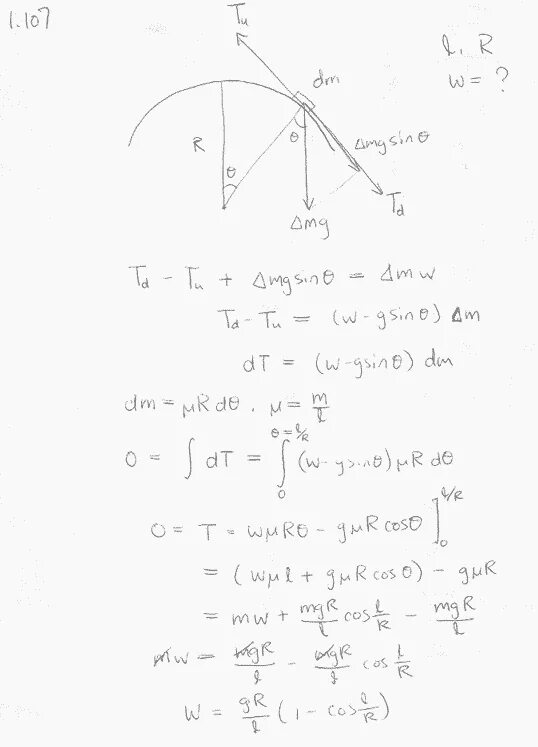 1.107
Tu
dm
l, R
w = ?
R
θ
θ
Δmg sinθ
Td
Δmg
Td - Tu + Δmg sinθ = Δm w
Td - Tu = (w - g sinθ) Δm
dT = (w - g sinθ) dm
dm = μR dθ, μ = m/l
0 = ∫ dT = ∫₀^(θ = l/R) (w - g sinθ) μR dθ
0 = T = wμRθ - gμR cosθ ]₀^(l/R)
= (wμl + gμR cosθ) - gμR
= mw + mgR/l cos l/R - mgR/l
mw = mgR/l - mgR/l cos l/R
w = gR/l (1 - cos l/R)